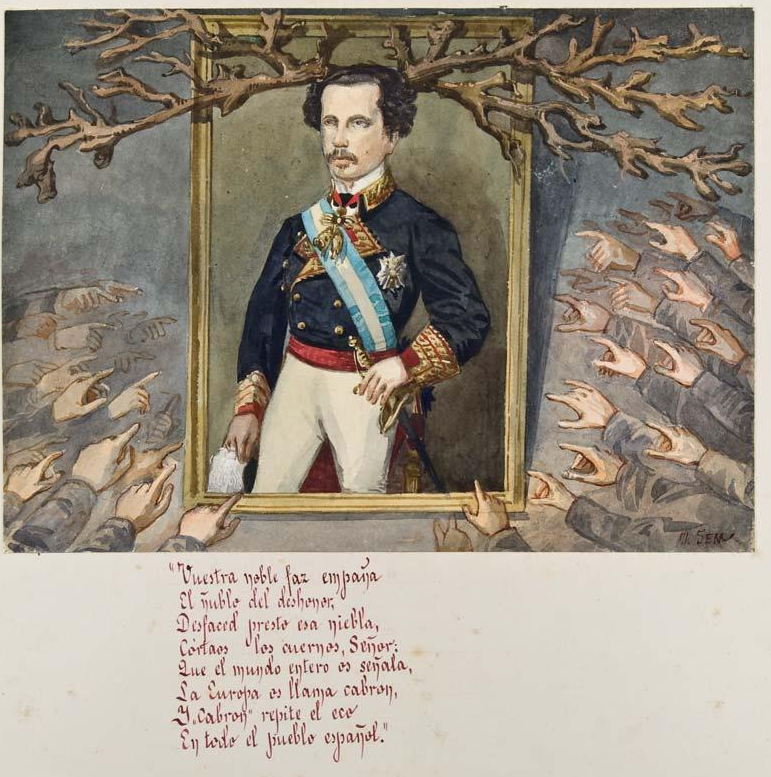 M. SEM
"Vuestra noble faz empaña
El ñublo del deshonor,
Desfaced presto esa niebla,
Córtaos los cuernos, Señor:
Que el mundo entero os señala,
La Europa os llama cabron,
Y "Cabron" repite el eco
En todo el pueblo español."